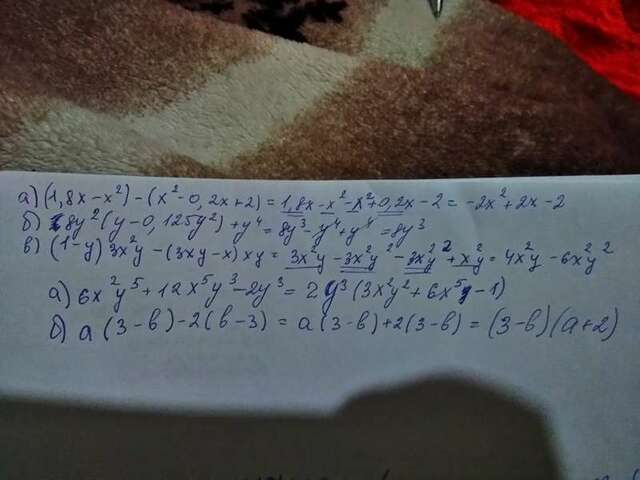 а) (1,8x-x²)-(x²-0,2x+2)=1,8x-x²-x²+0,2x-2=-2x²+2x-2
б) 8y²(y-0,125y²)+y⁴=8y³-y⁴+y⁴=8y³
в) (1-y)3x²y-(3xy-x)xy=3x²y-3x²y²-3x²y²+x²y=4x²y-6x²y²
а) 6x²y⁵+12x⁵y³-2y³=2y³(3x²y²+6x⁵-1)
б) a(3-b)-2(b-3)=a(3-b)+2(3-b)=(3-b)(a+2)